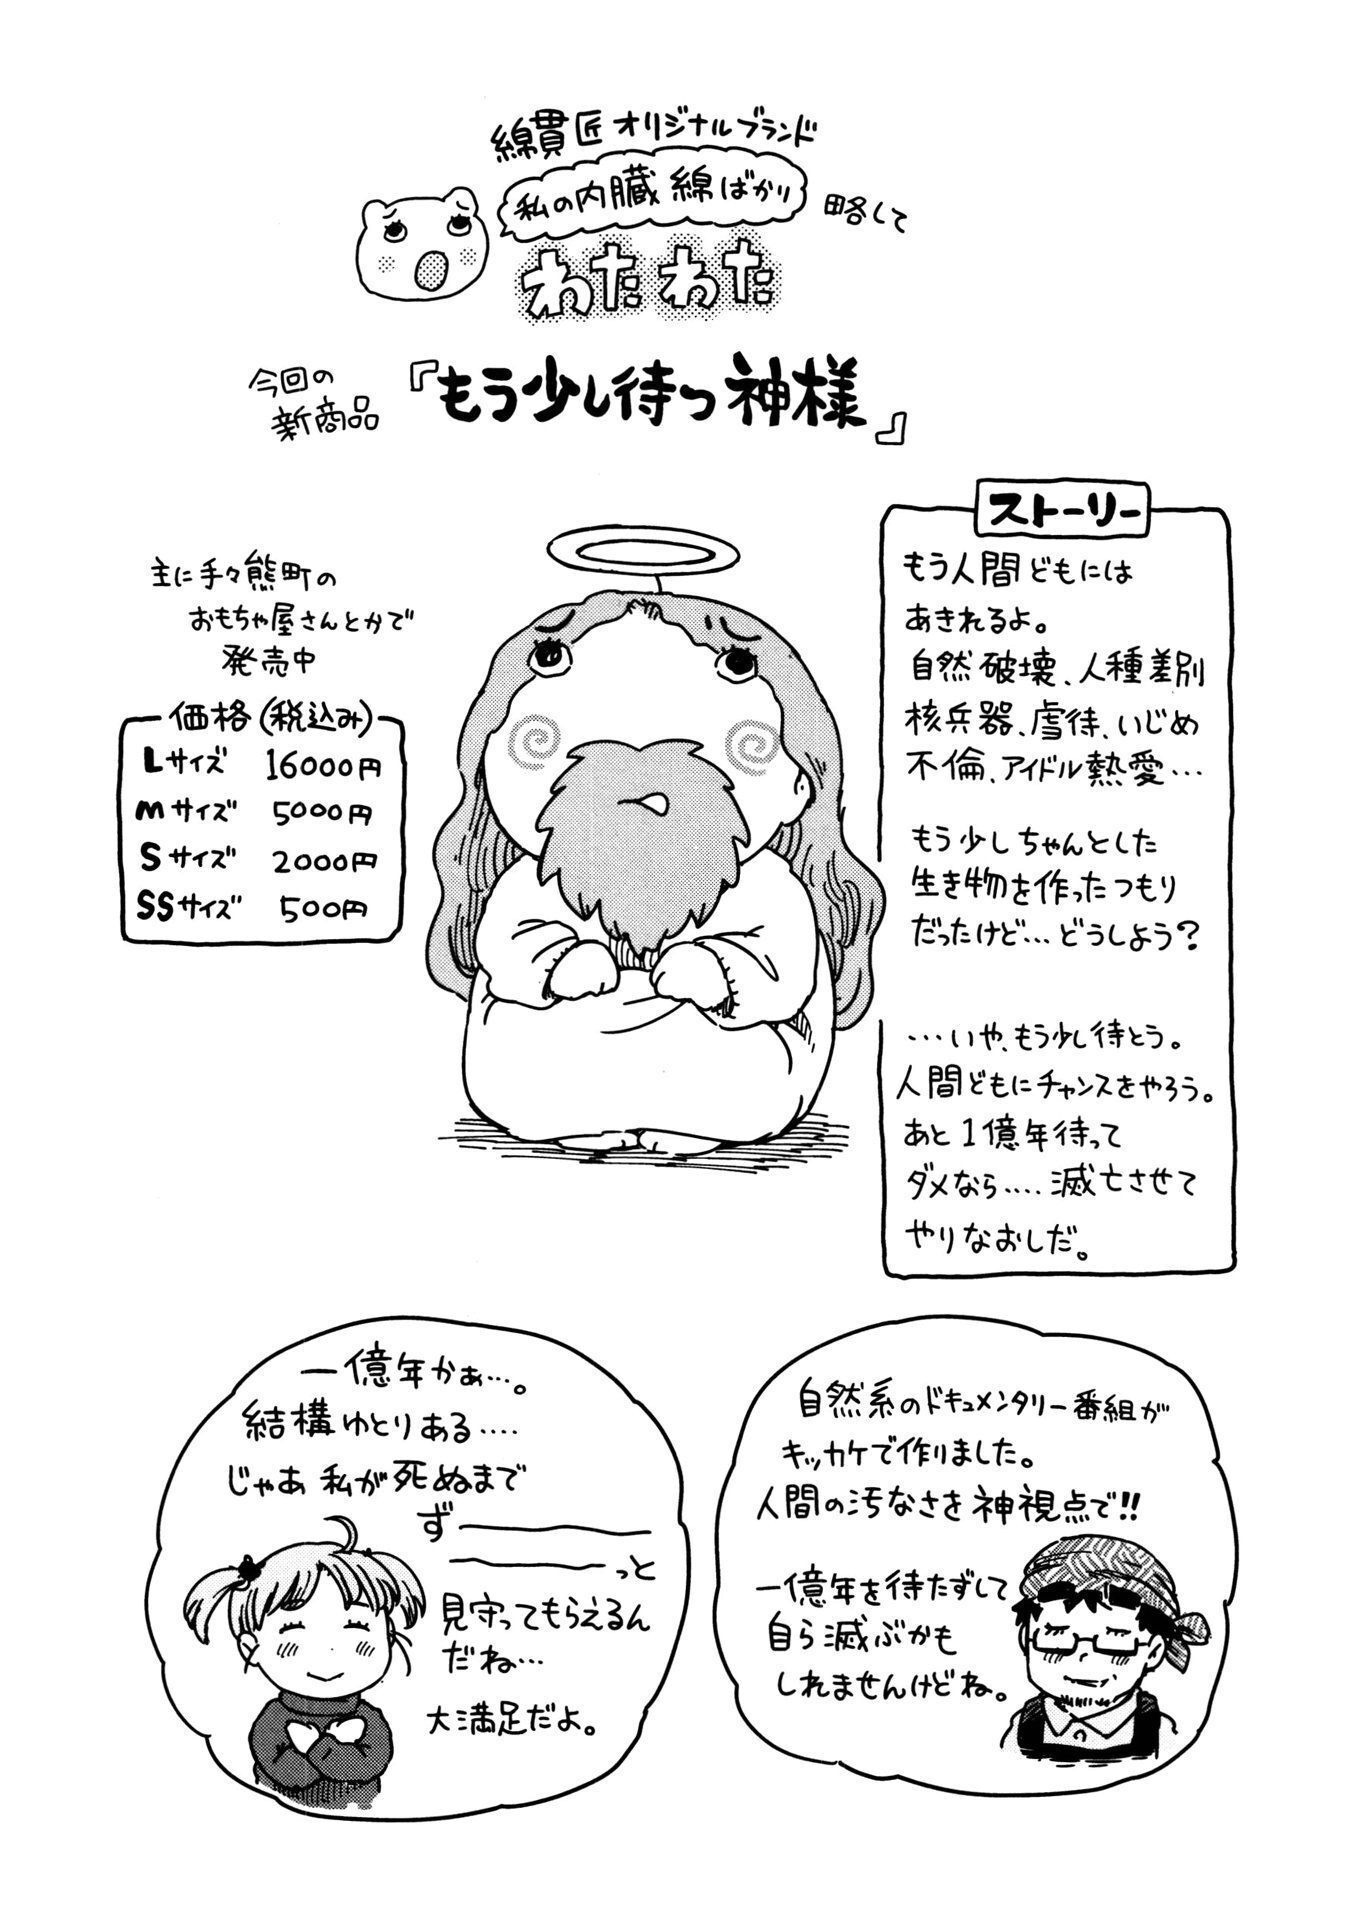 綿貫匠オリジナルブランド
私の内臓綿ばかり
略して
わたわた
今回の
新商品
『もう少し待つ神様』
主に手々熊町の
おもちゃ屋さんとかで
発売中
価格(税込み)
Lサイズ 16000円
mサイズ 5000円
Sサイズ 2000円
SSサイズ 500円
ストーリー
もう人間どもには
あきれるよ。
自然破壊、人種差別
核兵器、虐待、いじめ
不倫、アイドル熱愛…
もう少しちゃんとした
生き物を作ったつもり
だったけど…どうしよう?
…いや、もう少し待とう。
人間どもにチャンスをやろう。
あと1億年待って
ダメなら‥‥滅亡させて
やりなおしだ。
一億年かぁ…。
結構ゆとりある‥‥
じゃあ私が死ぬまで
ず――
――っと
見守ってもらえるん
だね…
大満足だよ。
自然系のドキュメンタリー番組が
キッカケで作りました。
人間の汚なさを神視点で!!
一億年を待たずして
自ら滅ぶかも
しれませんけどね。